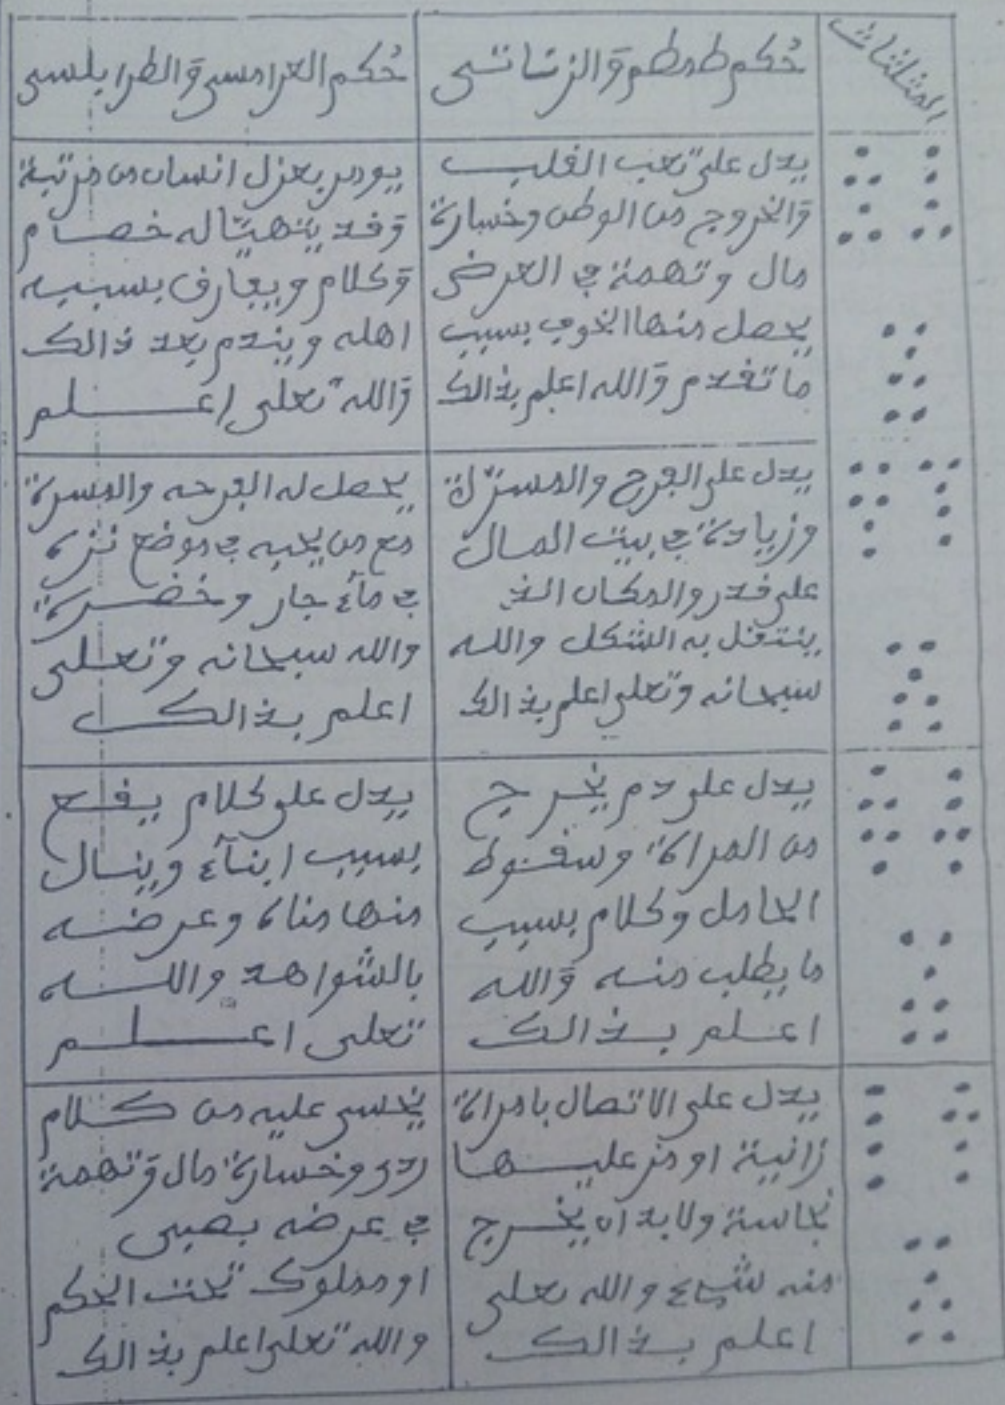 المثلثات
حُكم طمطم وَالزناتى
حُكم العرامسى وَالطرابلسى
يدل على تعب القلب
وَالخروج من الوطن وخسارة
مال وتهمة في العرض
يحصل منها الخوف بسبب
ما تقدم وَالله اعلم بذالك
يومر بعزل انسان من مرتبة
وَقد يتهيّا له خصام
وَكلام ويفارق بسببه
اهله ويندم بعد ذالك
وَالله تعلى اعلم
يدل على الفرح والمسرّة
وزيادة في بيت المال
على قدر والمكان الذ
ينتقل به الشكل والله
سبحانه وتعلى اعلم بذالك
يحصل له الفرحه والمسرة
مع من يحبه في موضع نزه
في مآء جار وخضرة
والله سبحانه وتعلى
اعلم بذالك
يدل على دم يخرج
من المراة وسقوط
الحامل وكلام بسبب
ما يطلب منه وَالله
اعلم بذالك
يدل على كلام يقع
بسبب ابنآء وينال
منها مناه وعرضه
بالشواهد والله
تعلى اعلم
يدل على الاتصال بامراة
زانية او من عليها
نجاسة ولابد ان يخرج
منه شيء والله تعلى
اعلم بذالك
يخسى عليه من كلام
ردى وخسارة مال وَتهمة
في عرضه بصبى
او مملوك تحت الحكم
والله تعلى اعلم بذالك